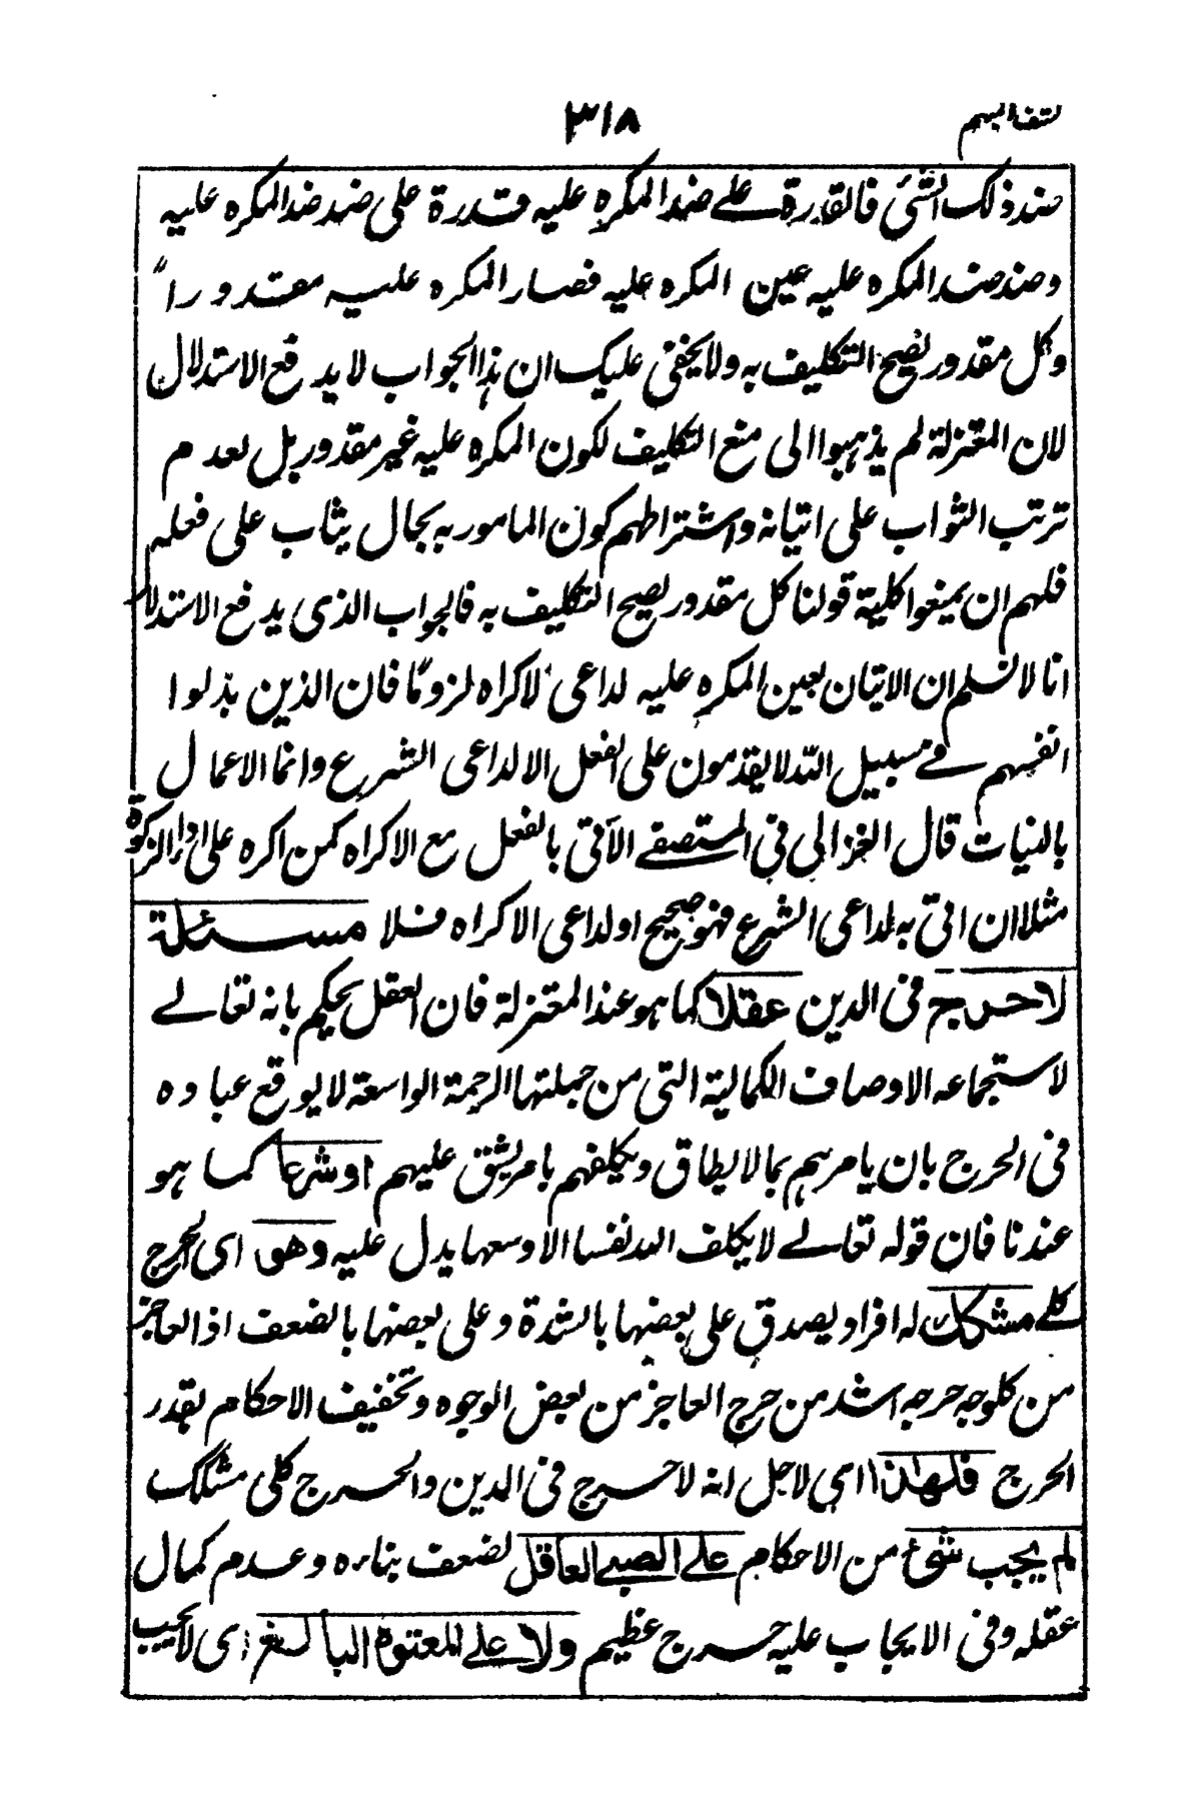 كشف المبهم
٣١٨
ضد ذلك الشئ فالقدرة على ضد المكره عليه قدرة على ضد ضد المكره عليه
وضد ضد المكره عليه عين المكره عليه فصار المكره عليه مقدورا
وكل مقدور يصح التكليف به ولا يخفى عليك ان هذا الجواب لا يدفع الاستدلال
لان المعتزلة لم يذهبوا الى منع التكليف لكون المكره عليه غير مقدور بل بعدم
ترتب الثواب على اتيانه واشتراطهم كون المامور به بحال يثاب على فعله
فلهم ان يمنعوا كلية قولنا كل مقدور يصح التكليف به فالجواب الذى يدفع الاستدلال
انا لا نسلم ان الاتيان بعين المكره عليه لداعى الاكراه لزوما فان الذين بذلوا
انفسهم فى سبيل الله لا يقدمون على الفعل الا لداعى الشرع وانما الاعمال
بالنيات قال الغزالى فى المستصفى الآتى بالفعل مع الاكراه كمن اكره على اداء الزكوة
مثلا ان اتى به لداعى الشرع فهو صحيح او لداعى الاكراه فلا مسئلة
لا حرج فى الدين عقلا كما هو عند المعتزلة فان العقل يحكم بانه تعالى
لاستجماعه الاوصاف الكمالية التى من جملتها الرحمة الواسعة لا يوقع عباده
فى الحرج بان يامرهم بما لا يطاق ويكلفهم بامر يشق عليهم او شرعا كما هو
عندنا فان قوله تعالى لا يكلف الله نفسا الا وسعها يدل عليه وهو اى الحرج
كلى مشكك له افراد يصدق على بعضها بالشدة وعلى بعضها بالضعف اذ العاجز
من كل وجه حرجه اشد من حرج العاجز من بعض الوجوه وتخفيف الاحكام بقدر
الحرج فلهذا اى لاجل انه لا حرج فى الدين والحرج كلى مشكك
لم يجب شئ من الاحكام على الصبى العاقل لضعف بناءه وعدم كمال
عقله وفى الايجاب عليه حرج عظيم ولا على المعتوه البالغ اى لا يجب